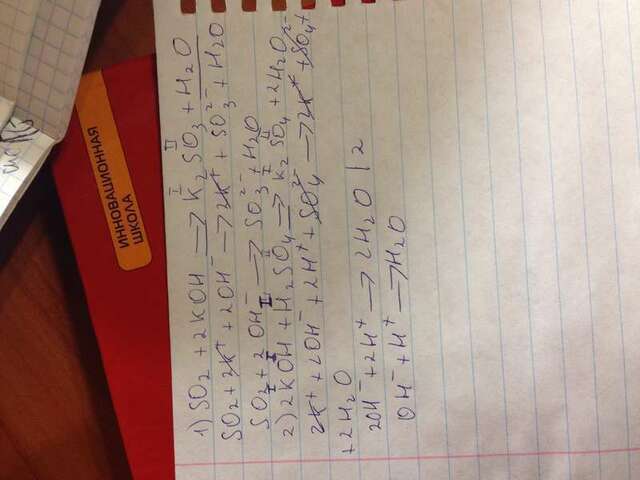 ИННОВАЦИОННАЯ
ШКОЛА
I II
1) SO2 + 2KOH → K2SO3 + H2O
SO2 + 2K⁺ + 2OH⁻ → 2K⁺ + SO3²⁻ + H2O
SO2 + 2OH⁻ → SO3²⁻ + H2O
I I II II I II
2) 2KOH + H2SO4 → K2SO4 + 2H2O
2K⁺ + 2OH⁻ + 2H⁺ + SO4²⁻ → 2K⁺ + SO4²⁻ +
+ 2H2O
2OH⁻ + 2H⁺ → 2H2O | 2
OH⁻ + H⁺ → H2O